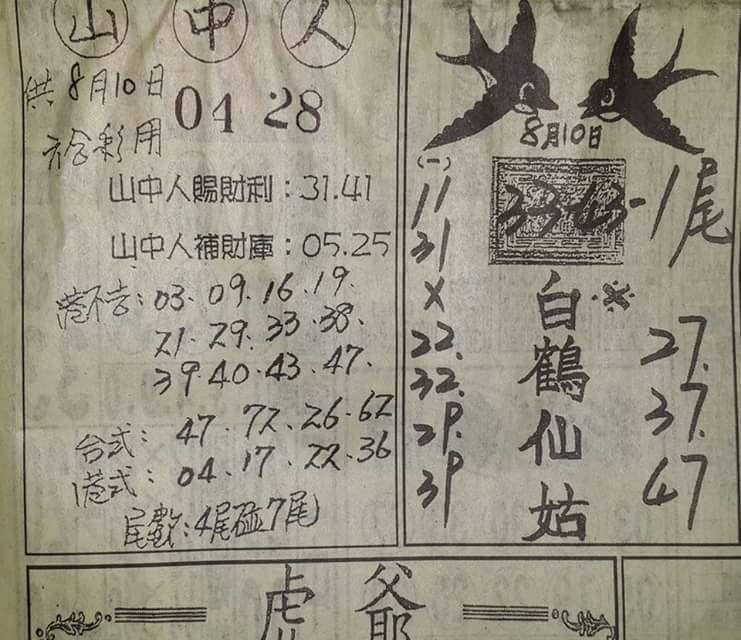 山中人
供8月10日
六合彩用
04 28
山中人賜財利：31.41
山中人補財庫：05.25
港不吉：03.09.16.19.
21.29.33.38.
39.40.43.47.
台式：47.72.26.62
港式：04.17.22.36
尾數：4尾碰7尾
8月10日
(一)
11
31
X
22.
32.
29.
39
33-43-1尾
白鶴仙姑
27.
37.
47
虎爺